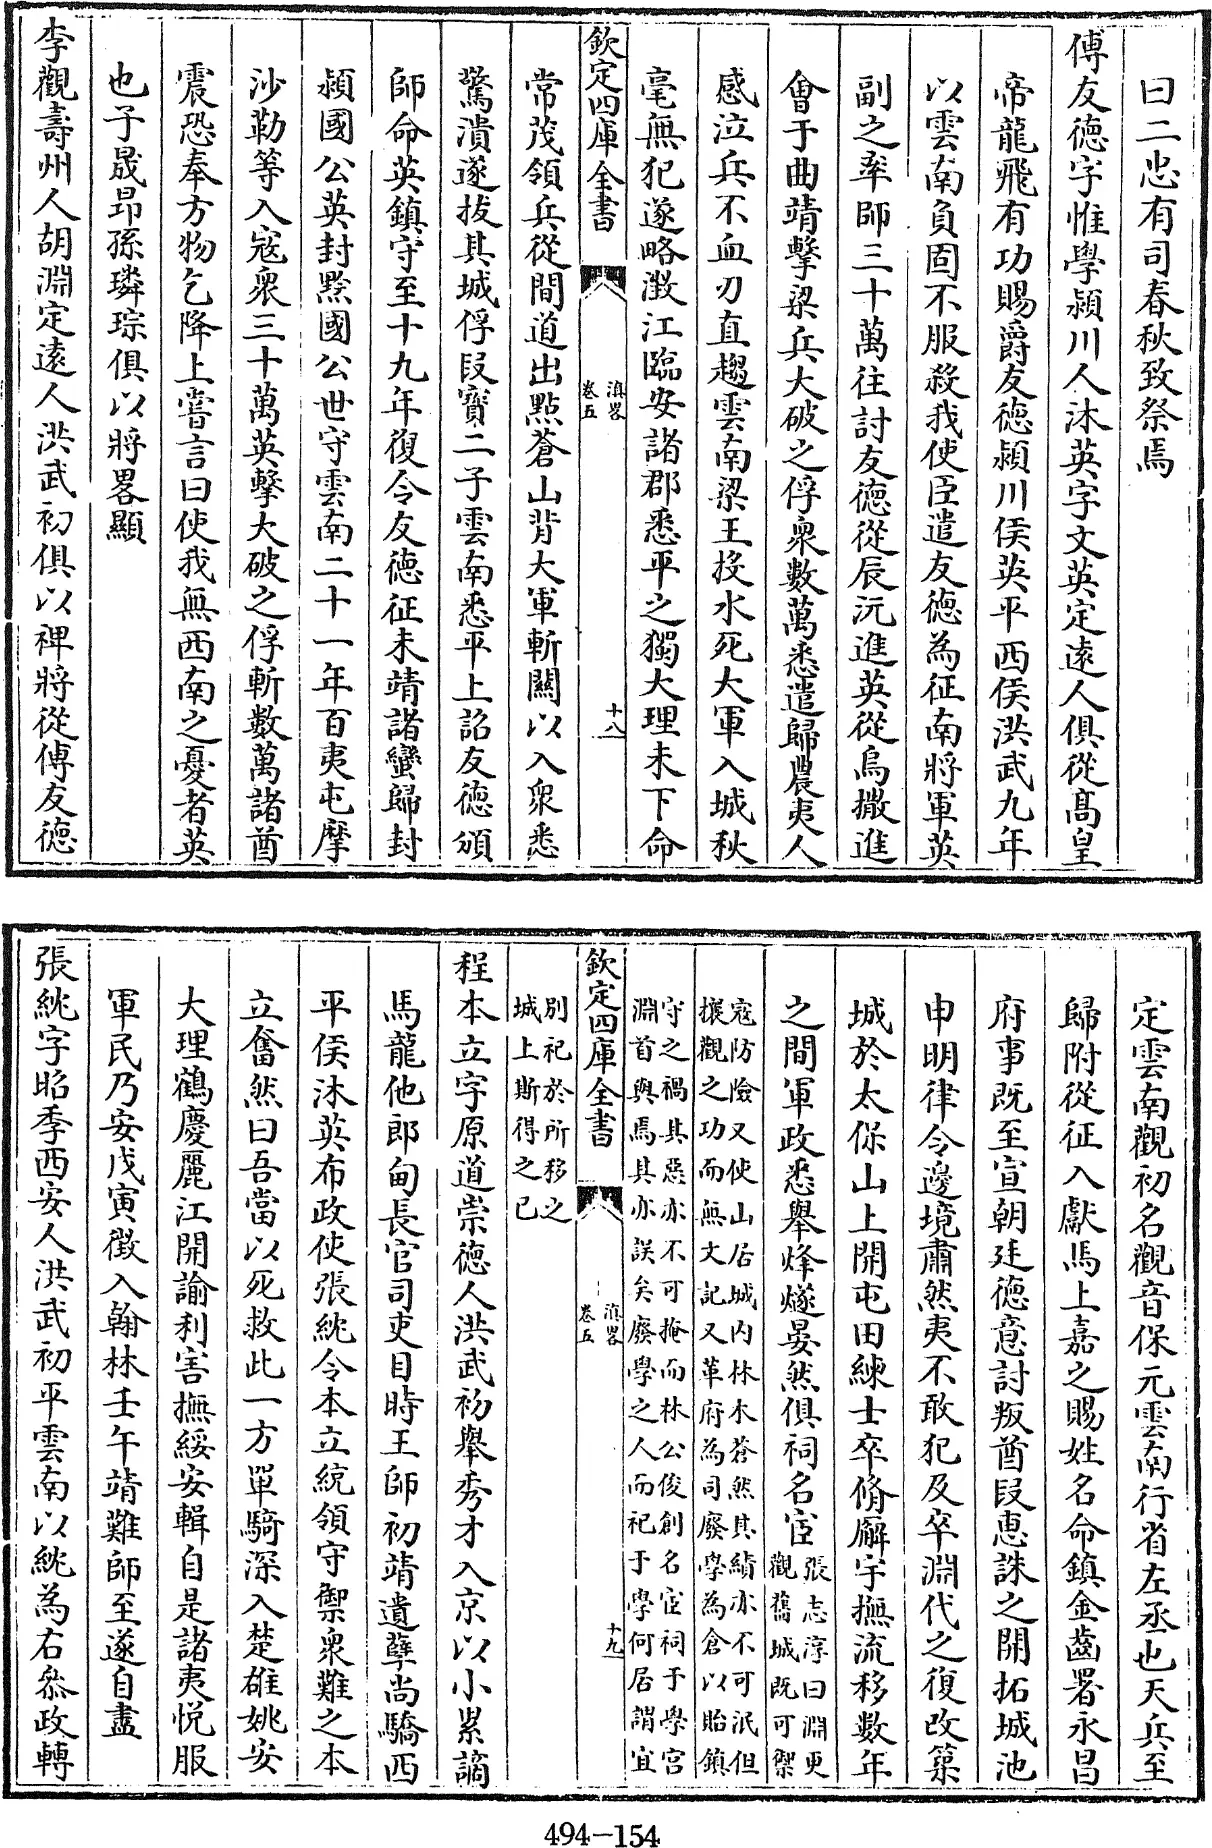 曰二忠有司春秋致祭焉
傅友德字惟學潁川人沐英字文英定逺人俱從髙皇
帝龍飛有功賜爵友德潁川侯英平西侯洪武九年
以雲南負固不服殺我使臣遣友德為征南將軍英
副之率師三十萬往討友德從辰沅進英從烏撒進
㑹于曲靖擊梁兵大破之俘衆數萬悉遣歸農夷人
感泣兵不血刃直趨雲南梁王投水死大軍入城秋
毫無犯遂略澂江臨安諸郡悉平之獨大理未下命
欽定四庫全書
滇畧
卷五
十八
常茂領兵從間道出點蒼山背大軍斬關以入衆悉
驚潰遂拔其城俘叚寶二子雲南悉平上詔友德頒
師命英鎮守至十九年復令友德征未靖諸蠻歸封
潁國公英封黔國公世守雲南二十一年百夷屯摩
沙勒等入寇衆三十萬英擊大破之俘斬數萬諸酋
震恐奉方物乞降上嘗言曰使我無西南之憂者英
也子晟昂孫璘琮俱以將畧顯
李觀壽州人胡淵定逺人洪武初俱以禆將從傅友德
定雲南觀初名觀音保元雲南行省左丞也天兵至
歸附從征入獻馬上嘉之賜姓名命鎮金齒署永昌
府事既至宣朝廷德意討叛酋叚惠誅之開拓城池
申明律令邊境肅然夷不敢犯及卒淵代之復改築
城於太保山上開屯田練士卒脩廨宇撫流移數年
之間軍政悉舉烽燧晏然俱祠名宦
張志淳曰淵更
觀舊城既可禦
寇防險又使山居城内林木蒼然其績亦不可泯但
攘觀之功而無文記又革府為司廢學為倉以貽鎮
守之禍其惡亦不可掩而林公俊創名宦祠于學宫
淵首與焉其亦誤矣廢學之人而祀于學何居謂宜
欽定四庫全書
滇畧
卷五
十九
別祀於所移之
城上斯得之已
程本立字原道崇德人洪武初舉秀才入京以小累謫
馬龍他郎甸長官司吏目時王師初靖遺孽尚驕西
平侯沐英布政使張紞令本立統領守禦衆難之本
立奮然曰吾當以死救此一方單騎深入楚雄姚安
大理鶴慶麗江開諭利害撫綏安輯自是諸夷悅服
軍民乃安戊寅徵入翰林壬午靖難師至遂自盡
張紞字昭季西安人洪武初平雲南以紞為右叅政轉
494-154